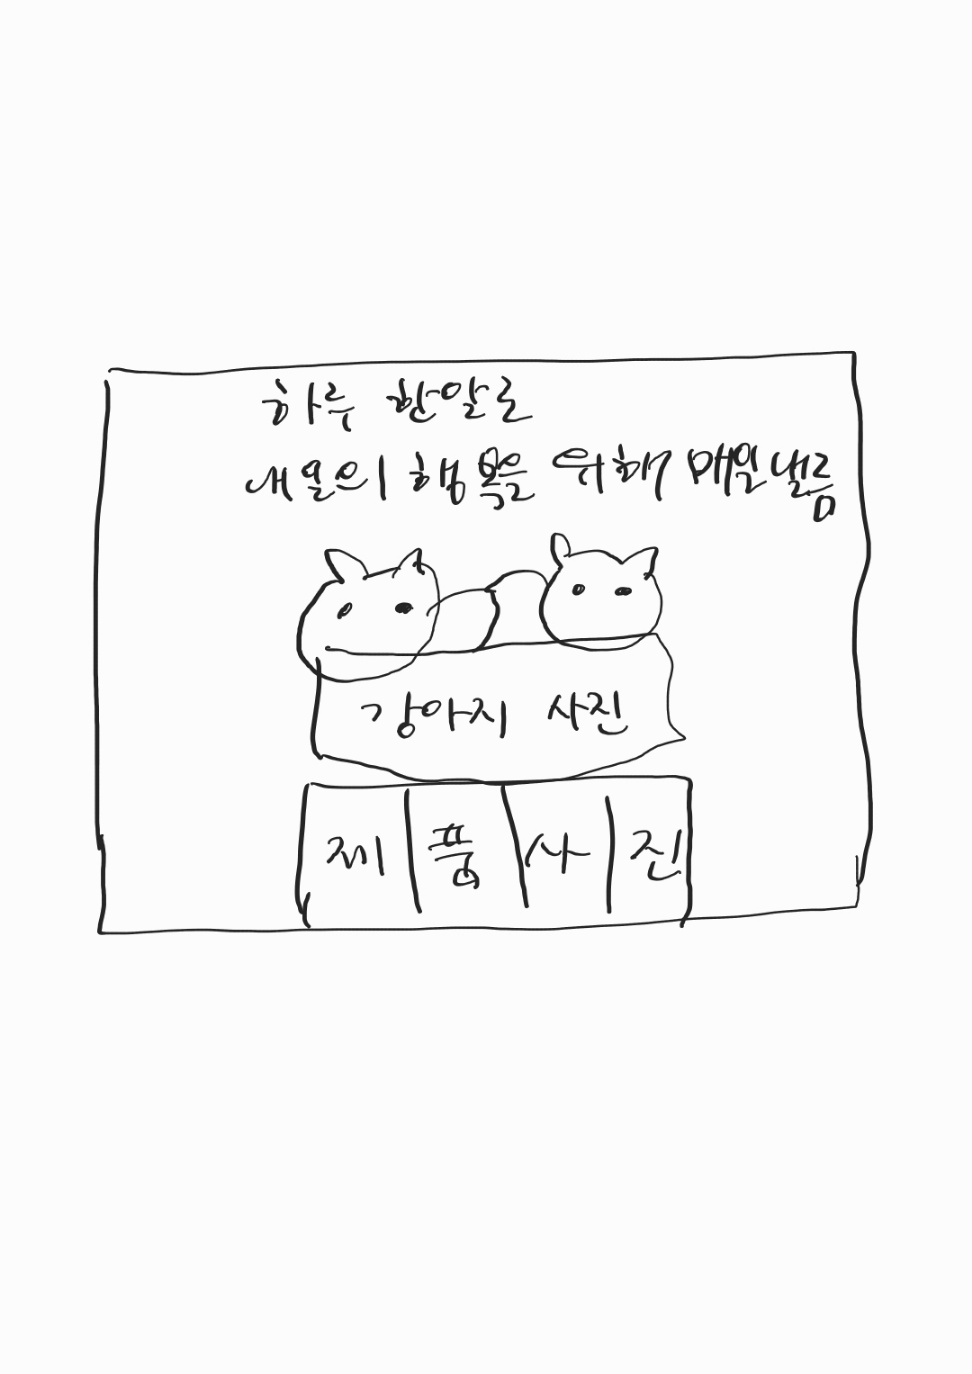 하루 한알로
내일의 행복을 위해 매일낼름
강아지 사진
제품사진